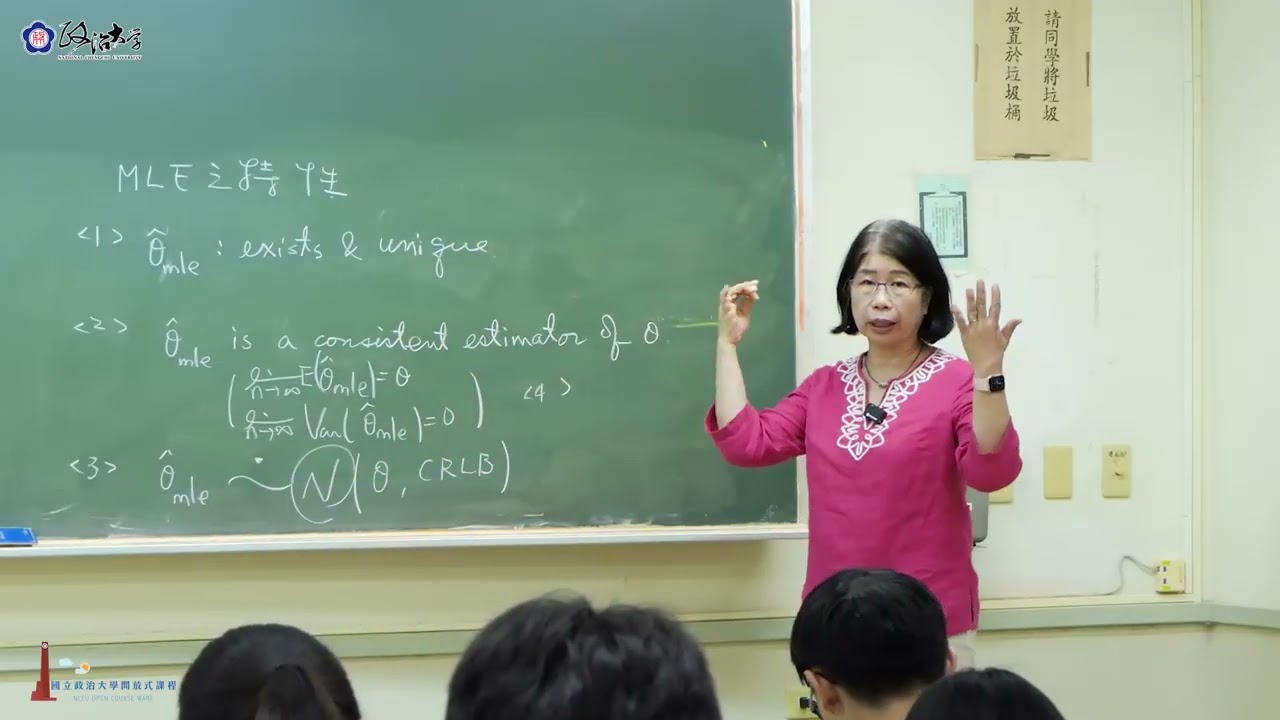 政治大學
NATIONAL CHENGCHI UNIVERSITY
請同學將垃圾
放置於垃圾桶
MLE之特性
<1> θ̂mle : exists & unique
<2> θ̂mle is a consistent estimator of θ.
( lim n→∞ E(θ̂mle) = θ
lim n→∞ Var(θ̂mle) = 0 ) <4>
<3> θ̂mle ~ N(θ, CRLB)
國立政治大學開放式課程
NCCU OPEN COURSE WARE